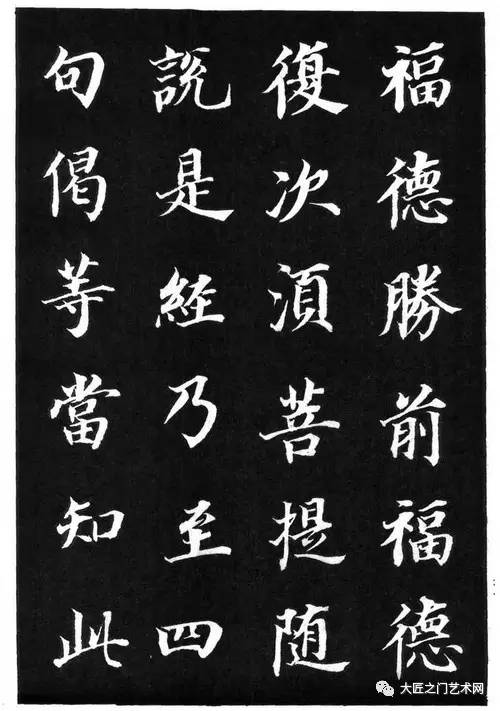 福德勝前福德
復次須菩提随
說是經乃至四
句偈等當知此
大匠之门艺术网